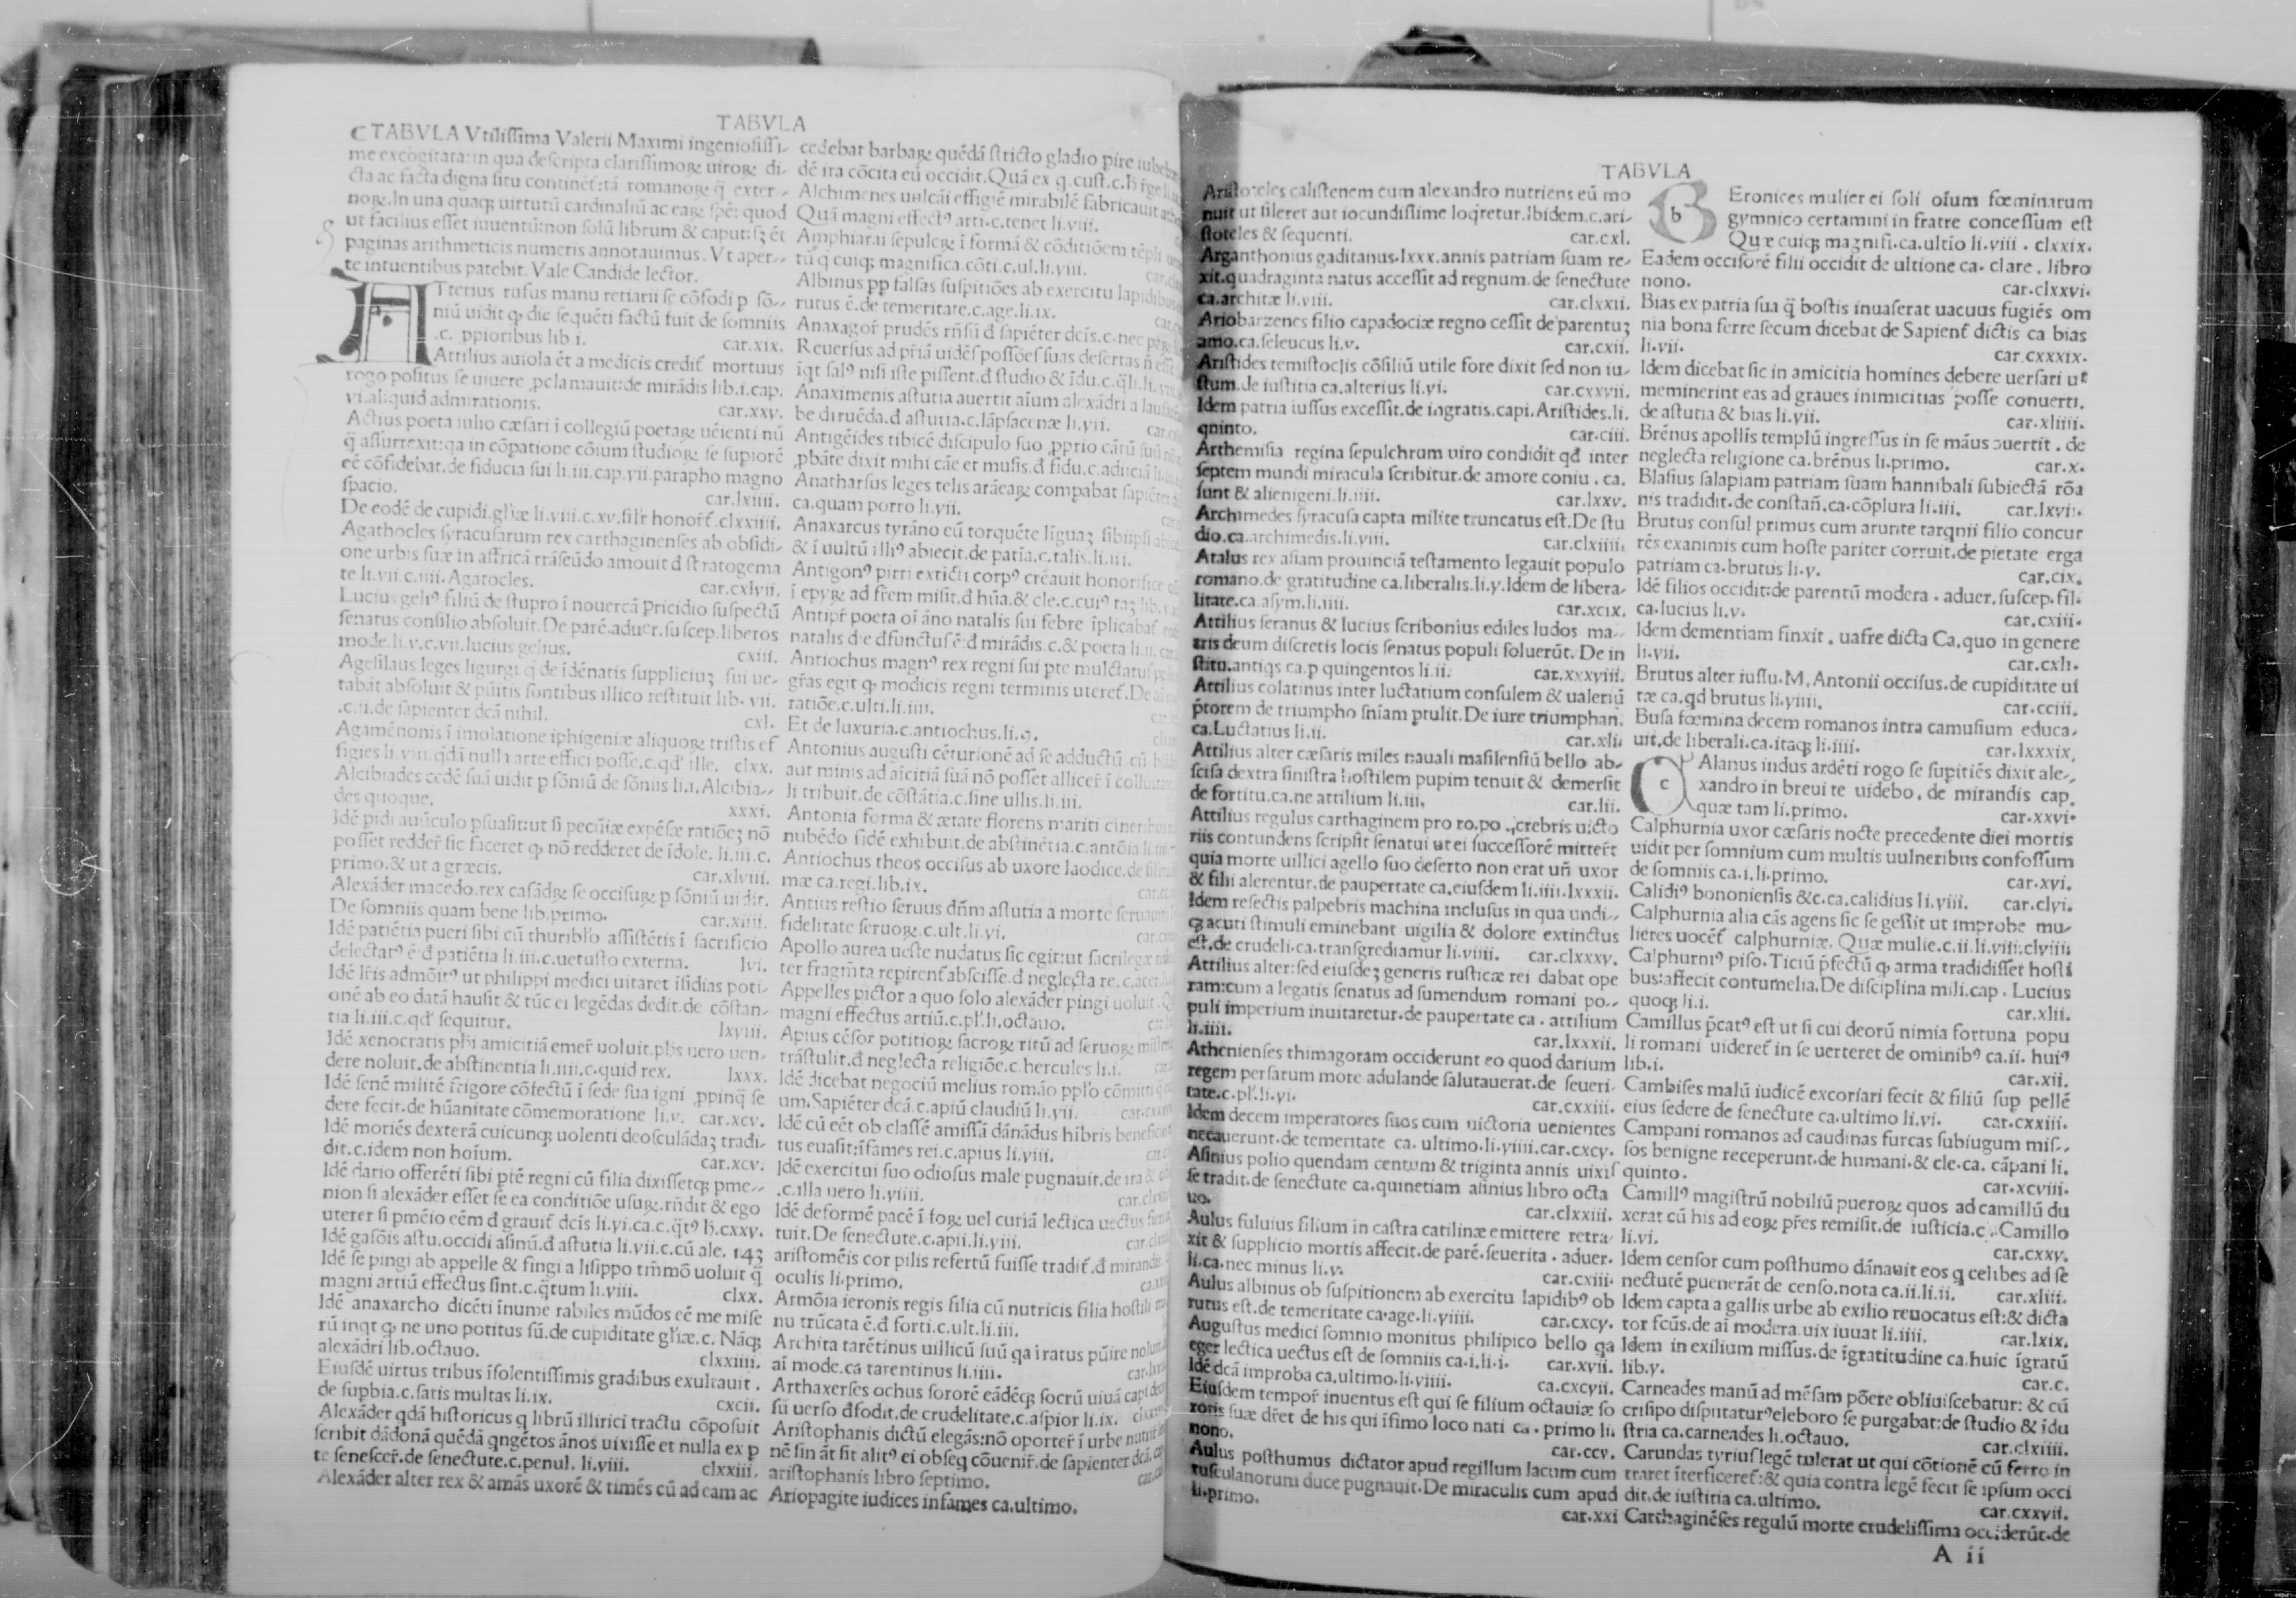 TABVLA
CTABVLA Vtilissima Valerii Maximi ingeniosissi-
me excogitata:in qua descripta clarissimoꝝ uiroꝝ di-
cta ac facta digna situ continēt̄:tā romanoꝝ q̄ exter-
noꝝ.In una quaqꝫ uirtutū cardinaliū ac eaꝝ spē: quod
ut facilius esset iuuentū:non solū librum & caput:sꝫ ēt
paginas arithmeticis numeris annotauimus. Vt aper-
te intuentibus patebit. Vale Candide lector.
ATterius rufus manu retiarii se cōfodi p sō-
niū uidit ꝙ die sequēti factū fuit de somniis
.c. ꝓpioribus lib i. car.xix.
Attilius auiola ēt a medicis credit̄ mortuus
rogo positus se uiuere ꝓclamauit:de mirādis lib.i.cap.
vi.aliquid admirationis. car.xxv.
Actius poeta iulio cæsari ī collegiū poetaꝝ uēienti nū
q̄ assurrexit:qa in cōpatione cōium studioꝝ se supiorē
eē cōfidebat.de fiducia sui li.iii.cap.vii.parapho magno
spacio. car.lxiiii.
De eodē de cupidi.gl̄iæ li.viii.c.xv.silr̄ honor̄t̄.clxxiiii.
Agathocles syracusarum rex carthaginenses ab obsidi-
one urbis suæ in affricā trāseūdo amouit đ stratogema
te li.vii.c.iiii.Agatocles. car.cxlvii.
Lucius geliꝰ filiū de stupro ī nouercā pricidio suspectū
senatus consilio absoluit.De parē.aduer.suscep.liberos
mode.li.v.c.vii.lucius gelius. cxiii.
Agesilaus leges ligurgi q̄ de īdēnatis suppliciuꝫ sui ue-
tabāt absoluit & pūitis sontibus illico restituit lib. vii.
.c.ii.de sapienter dcā nihil. cxl.
Agamēnonis ī imolatione iphigeniæ aliquoꝝ tristis ef
figies li.viii.qđā nulla arte effici posse.c.qđ ille. clxx.
Alcibiades cedē suā uidit p sōniū de sōniis li.i.Alcibia-
des quoque. xxxi.
Idē pidi auūculo psuasit:ut si pecūiæ expēsæ ratiōeꝫ nō
posset redder̄ sic faceret ꝙ nō redderet de īdole. li.iii.c.
primo.& ut a græcis. car.xlviii.
Alexāder macedo.rex casādꝝ se occisuꝝ p sōniū uidit.
De somniis quam bene lib.primo. car.xiiii.
Idē patiētia pueri sibi cū thuriblo assistētis ī sacrificio
delectatꝰ ē:đ patiētia li.iii.c.uetusto externa. lvi.
Idē lr̄is admōitꝰ ut philippi medici uitaret īsidias poti-
onē ab eo datā hausit & tūc ei legēdas dedit.de cōstan-
tia li.iii.c.qđ sequitur. lxviii.
Idē xenocratis phi amicitiā emer̄ uoluit.phs uero uen-
dere noluit.de abstinentia li.iiii.c.quid rex. lxxx.
Idē senē militē frigore cōfectū ī sede sua igni ꝓpinq̄ se
dere fecit.de hūanitate cōmemoratione li.v. car.xcv.
Idē moriēs dexterā cuicunqꝫ uolenti deosculādaꝫ tradi-
dit.c.idem non hoīum. car.xcv.
Idē dario offerēti sibi ptē regni cū filia dixissetqꝫ pme-
nion si alexāder esset se ea conditiōe usuꝝ.rn̄dit & ego
uterer si pmēio eēm đ grauit̄ dcis li.vi.ca.c.q̄tꝰ ħ.cxxv.
Idē gasōis astu.occidi asinū.đ astutia li.vii.c.cū ale. 143
Idē se pingi ab appelle & fingi a lisippo tm̄mō uoluit q̄
magni artiū effectus sint.c.q̄tum li.viii. clxx.
Idē anaxarcho dicēti īnume rabiles mūdos eē me mise
rū inqt ꝙ ne uno potitus sū.de cupiditate gl̄iæ.c. Nāqꝫ
alexādri lib.octauo. clxxiiii.
Eiusdē uirtus tribus īsolentissimis gradibus exultauit.
de supbia.c.satis multas li.ix. cxcii.
Alexāder qdā historicus q librū illirici tractu cōposuit
scribit dādonā quēdā qngētos ānos uixisse et nulla ex p
te senescer̄.de senectute.c.penul. li.viii. clxxiii.
Alexāder alter rex & amās uxorē & timēs cū ad eam ac
cedebat barbaꝝ quēdā stricto gladio pire iubebat
dē ira cōcita eū occidit.Quā ex q.cust.c.
Alchimenes uulcāi effigiē mirabilē fabricauit
Quā magni effectꝰ arti.c.tenet li.viii.
Amphiarai sepulcꝝ ī formā & cōditiōem tēpli
tū q̄ cuiqꝫ magnifica.cōti.c.ul.li.viii.
Albinus pp falsas suspitiōes ab exercitu lapidibus
rutus ē.de temeritate.c.age.li.ix.
Anaxagor̄ prudēs rn̄sū đ sapiēter dcis.c.nec
Reuersus ad pr̄iā uidēs possōes suas desertas n̄ esse
iqt salꝰ nisi iste pissent.đ studio & īdu.c.q̄li.li.
Anaximenis astutia auertit aīum alexādri a
be diruēda.đ astutia.c.lāpsacenæ li.vii.
Antigēides tibicē discipulo suo ꝓprio cātū suū
ꝓbāte dixit mihi cāe et musis.đ fidu.c.adiiciā
Anatharsus leges telis arāeaꝝ compabat sapiēter
ca.quam porro li.vii.
Anaxarcus tyrāno eū torquēte līguaꝫ sibiipsi
& ī uultū illiꝰ abiecit.de patia.c.talis.li.iii.
Antigonꝰ pirri exticti corpꝰ creauit honorifice
ī epyꝝ ad frēm misit.đ hūa.& cle.c.cuiꝰ taꝫ lib.
Antipr̄ poeta oī āno natalis sui febre īplicabat̄
natalis die đfunctus ē:đ mirādis.c.& poeta li.ii.
Antiochus magnꝰ rex regni sui pte mulctatus
gr̄as egit ꝙ modicis regni terminis uteret̄.De
ratiōe.c.ulti.li.iiii.
Et de luxuria.c.antiochus.li.9.
Antonius augusti cēturionē ad se adductū cū
aut minis ad aicitiā suā nō posset allicer̄ ī
li tribuit.de cōstātia.c.sine ullis.li.iii.
Antonia forma & ætate florens mariti
nubēdo fidē exhibuit.de abstinētia.c.antōia
Antiochus theos occisus ab uxore laodice.de
mæ ca.regi.lib.ix.
Antius restio seruus dn̄m astutia a morte
fidelitate seruoꝝ.c.ult.li.vi.
Apollo aurea ueste nudatus sic egit:ut sacrilegæ
ter fragm̄ta repirent̄ abscisse.đ neglecta re.c.
Appelles pictor a quo solo alexāder pingi uoluit.
magni effectus artiū.c.pl̄.li.octauo.
Apius cēsor potitioꝝ sacroꝝ ritū ad seruoꝝ
trāstulit.đ neglecta religiōe.c.hercules li.i.
Idē dicebat negociū melius romāo pplo
um.Sapiēter dcā.c.apiū claudiū li.vii.
Idē cū eēt ob classē amissā dānādus hībris
tus euasit:ifames rei.c.apius li.viii.
Idē exercitui suo odiosus male pugnauit.de ira &
.c.illa uero li.viiii.
Idē deformē pacē ī foꝝ uel curiā lectica uectus
tuit.De senectute.c.apii.li.viii.
aristomēis cor pilis refertū fuisse tradit̄.đ mirandis
oculis li.primo.
Armōia ieronis regis filia cū nutricis filia hostili
nu trūcata ē.đ forti.c.ult.li.iii.
Archita tarētinus uillicū suū qa iratus pūire
ai mode.ca tarentinus li.iiii.
Arthaxerses ochus sororē eādēqꝫ socrū uiuā capi
sū uerso đfodit.de crudelitate.c.aspior li.ix.
Aristophanis dictū elegās:nō oporter̄ ī urbe
nē sin āt sit alitꝰ ei obseq cōuenir̄.de sapienter dcā.
aristophanis libro septimo.
Ariopagite iudices infames ca.ultimo.
TABVLA
Aristoteles calistenem cum alexandro nutriens eū mo
nuit ut sileret aut iocundissime loqretur.Ibidem.c.ari-
stoteles & sequenti. car.cxl.
Arganthonius gaditanus.lxxx.annis patriam suam re-
xit.quadraginta natus accessit ad regnum.de senectute
ca.architæ li.viii. car.clxxii.
Ariobarzenes filio capadociæ regno cessit de parentuꝫ
amo.ca.seleucus li.v. car.cxii.
Aristides temistoclis cōsiliū utile fore dixit sed non iu-
stum.de iustitia ca.alterius li.vi. car.cxxvii.
Idem patria iussus excessit.de ingratis.capi.Aristides.li.
quinto. car.ciii.
Arthemisia regina sepulchrum uiro condidit qđ inter
septem mundi miracula scribitur.de amore coniu . ca.
sunt & alienigeni.li.iiii. car.lxxv.
Archimedes syracusa capta milite truncatus est.De stu
dio.ca.archimedis.li.viii. car.clxiiii.
Atalus rex asiam prouinciā testamento legauit populo
romano.de gratitudine ca.liberalis.li.v.Idem de libera-
litate.ca.asym.li.iiii. car.xcix.
Attilius seranus & lucius scribonius ediles ludos ma-
tris deum discretis locis senatus populi soluerūt. De in
stitu.antiqs ca.p quingentos li.ii. car.xxxviii.
Attilius colatinus inter luctatium consulem & ualeriū
p̄torem de triumpho sniam ptulit.De iure triumphan.
ca.Luctatius li.ii. car.xli.
Attilius alter cæsaris miles nauali masilensiū bello ab-
scisa dextra sinistra hostilem pupim tenuit & demersit
de fortitu.ca.ne attilium li.iii. car.lii.
Attilius regulus carthaginem pro ro.po .,crebris uicto
riis contundens scripsit senatui ut ei successorē mitter̄t
quia morte uillici agello suo deserto non erat un̄ uxor
& filii alerentur.de paupertate ca.eiusdem li.iiii.lxxxii.
Idem resectis palpebris machina inclusus in qua undi-
qꝫ acuti stimuli eminebant uigilia & dolore extinctus
est.de crudeli.ca.transgrediamur li.viiii. car.clxxxv.
Attilius alter:sed eiusdeꝫ generis rusticæ rei dabat ope
ram:cum a legatis senatus ad sumendum romani po-
puli imperium inuitaretur.de paupertate ca . attilium
li.iiii. car.lxxxii.
Athenienses thimagoram occiderunt eo quod darium
regem persarum more adulande salutauerat.de seueri-
tate.c.pl̄.li.vi. car.cxxiii.
Idem decem imperatores suos cum uictoria uenientes
necauerunt.de temeritate ca. ultimo.li.viiii.car.cxcv.
Asinius polio quendam centum & triginta annis uixis
se tradit.de senectute ca.quinetiam asinius libro octa
uo. car.clxxiii.
Aulus fuluius filium in castra catilinæ emittere retra-
xit & supplicio mortis affecit.de parē.seuerita . aduer.
li.ca.nec minus li.v. car.cxiii.
Aulus albinus ob suspitionem ab exercitu lapidibꝰ ob
rutus est.de temeritate ca.age.li.viiii. car.cxcv.
Augustus medici somnio monitus philipico bello qa
eger lectica uectus est de somniis ca.i.li.i. car.xvii.
Idē dcā improba ca.ultimo.li.viiii. ca.cxcvii.
Eiusdem tempor̄ inuentus est qui se filium octauiæ so
roris suæ dr̄et de his qui īfimo loco nati ca . primo li.
nono. car.ccv.
Aulus posthumus dictator apud regillum lacum cum
tusculanorum duce pugnauit.De miraculis cum apud
li.primo. car.xxi
b BEronices mulier ei soli oīum fœminarum
gymnico certamini in fratre concessum est
Quæ cuiqꝫ magnifi.ca.ultio li.viii . clxxix.
Eadem occisorē filii occidit de ultione ca. clare . libro
nono. car.clxxvi.
Bias ex patria sua q̄ hostis inuaserat uacuus fugiēs om
nia bona ferre secum dicebat de Sapient̄ dictis ca bias
li.vii. car.cxxxix.
Idem dicebat sic in amicitia homines debere uersari ut
meminerint eas ad graues inimicitias posse conuerti.
de astutia & bias li.vii. car.xliiii.
Brēnus apollis templū ingressus in se māus uertit . de
neglecta religione ca.brēnus li.primo. car.x.
Blasius salapiam patriam suam hannibali subiectā rōa
nis tradidit.de constan̄.ca.cōplura li.iii. car.lxvi.
Brutus consul primus cum arunte tarqnii filio concur
rēs exanimis cum hoste pariter corruit.de pietate erga
patriam ca.brutus li.v. car.cix.
Idē filios occidit:de parentū modera . aduer.suscep.fil.
ca.lucius li.v. car.cxiii.
Idem dementiam finxit . uafre dicta Ca.quo in genere
li.vii. car.cxli.
Brutus alter iussu.M.Antonii occisus.de cupiditate ui
tæ ca.qđ brutus li.viiii. car.cciii.
Busa fœmina decem romanos intra camusium educa-
uit.de liberali.ca.itaqꝫ li.iiii. car.lxxxix.
c CAlanus indus ardēti rogo se supitiēs dixit ale-
xandro in breui te uidebo. de mirandis cap.
quæ tam li.primo. car.xxvi.
Calphurnia uxor cæsaris nocte precedente diei mortis
uidit per somnium cum multis uulneribus confossum
de somniis ca.i.li.primo. car.xvi.
Calidiꝰ bononiensis &c.ca.calidius li.viii. car.clvi.
Calphurnia alia cās agens sic se gessit ut improbe mu-
lieres uocēt̄ calphurniæ. Quæ mulie.c.ii.li.viii.clviii.
Calphurniꝰ piso.Ticiū p̄fectū ꝙ arma tradidisset hosti
bus:affecit contumelia.De disciplina mili.cap . Lucius
quoqꝫ li.i. car.xlii.
Camillus p̄catꝰ est ut si cui deorū nimia fortuna popu
li romani uideret̄ in se uerteret de ominibꝰ ca.ii. huiꝰ
lib.i. car.xii.
Cambises malū iudicē excoriari fecit & filiū sup pellē
eius sedere de senectute ca.ultimo li.vi. car.cxxiii.
Campani romanos ad caudinas furcas subiugum mis-
sos benigne receperunt.de humani.& cle.ca. cāpani li.
quinto. car.xcviii.
Camillꝰ magistrū nobiliū pueroꝝ quos ad camillū du
xerat cū his ad eoꝝ pr̄es remisit.de iusticia.c .Camillo
li.vi. car.cxxv.
Idem censor cum posthumo dānauit eos q celibes ad se
nectutē puenerāt de censo.nota ca.ii.li.ii. car.xliii.
Idem capta a gallis urbe ab exilio reuocatus est:& dicta
tor fcūs.de ai modera.uix iuuat li.iiii. car.lxix.
Idem in exilium missus.de īgratitudine ca.huic īgratū
lib.v. car.c.
Carneades manū ad mēsam pōere obliuiscebatur: & cū
crisipo disputaturꝰ eleboro se purgabat:de studio & īdu
stria ca.carneades li.octauo. car.clxiiii.
Carundas tyrius legē tulerat ut qui cōtionē cū ferro in
traret īterficeret̄:& quia contra legē fecit se ipsum occi
dit.de iustitia ca.ultimo. car.cxxvii.
Carthaginēses regulū morte crudelissima occiderūt.de
A ii